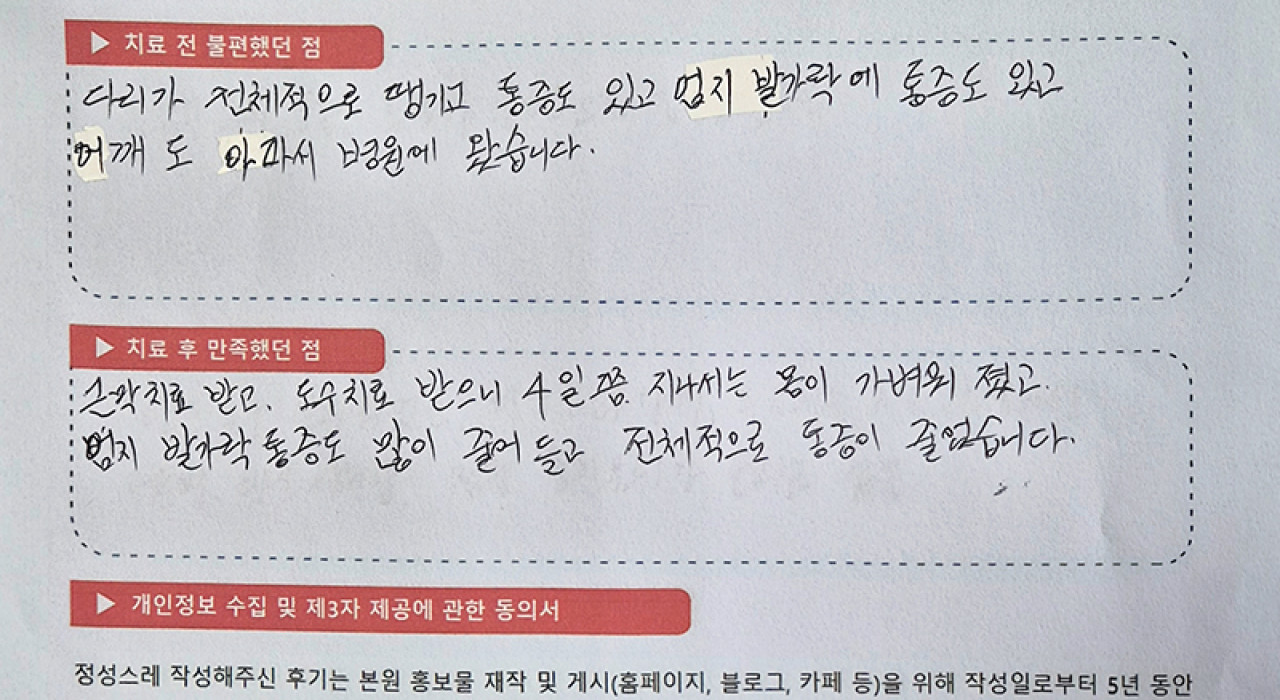 ▶ 치료 전 불편했던 점
다리가 전체적으로 땡기고 통증도 있고 엄지 발가락에 통증도 있고
어깨도 아파서 병원에 왔습니다.
▶ 치료 후 만족했던 점
근막치료 받고. 도수치료 받으니 4일쯤 지나서는 몸이 가벼워 졌고.
엄지 발가락 통증도 많이 줄어 들고 전체적으로 통증이 줄었습니다.
▶ 개인정보 수집 및 제3자 제공에 관한 동의서
정성스레 작성해주신 후기는 본원 홍보물 재작 및 게시(홈페이지, 블로그, 카페 등)을 위해 작성일로부터 5년 동안